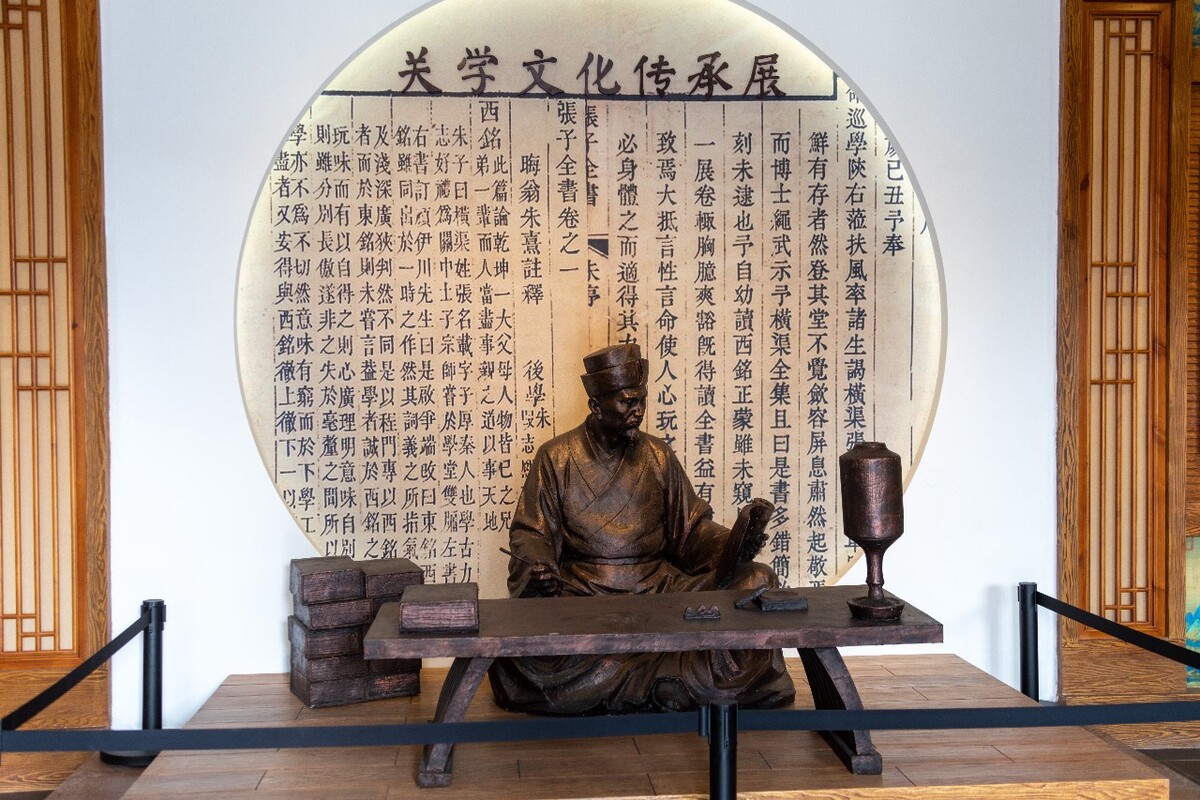 关学文化传承展
己丑予奉
命巡學陝右蒞扶風率諸生謁橫渠張
鮮有存者然登其堂不覺斂容屏息肅然起敬
而博士繩武示予橫渠全集且曰是書多錯簡
刻未逮也予自幼讀西銘正蒙雖未窺
一展卷輒胸臆爽豁旣得讀全書益有
致焉大抵言性言命使人心玩
必身體之而適得其
張子全書 朱序
張子全書卷之一
晦翁朱熹註釋 後學朱
西銘此篇論乾坤一大父母人物皆已之兄
弟一輩而人當盡事親之道以事天地
朱子曰橫渠姓張名載字子厚秦人也學古力
志好禮爲關中士子宗師嘗於學堂雙牖左書
右書訂頑伊川先生曰是啟爭端改曰東銘西
銘雖同出於一時之作然其詞義之所指氣
及淺深廣狹判然不同是以程門專以西銘
者而於東銘則未嘗言葢學者誠於西銘之
玩味而有以自得之則心廣理明意味自別
則雖分別長傲遂非之失於毫釐之間所以
學亦不爲不切然意味有窮而於下學工
盡者又安得與西銘徹上徹下一以